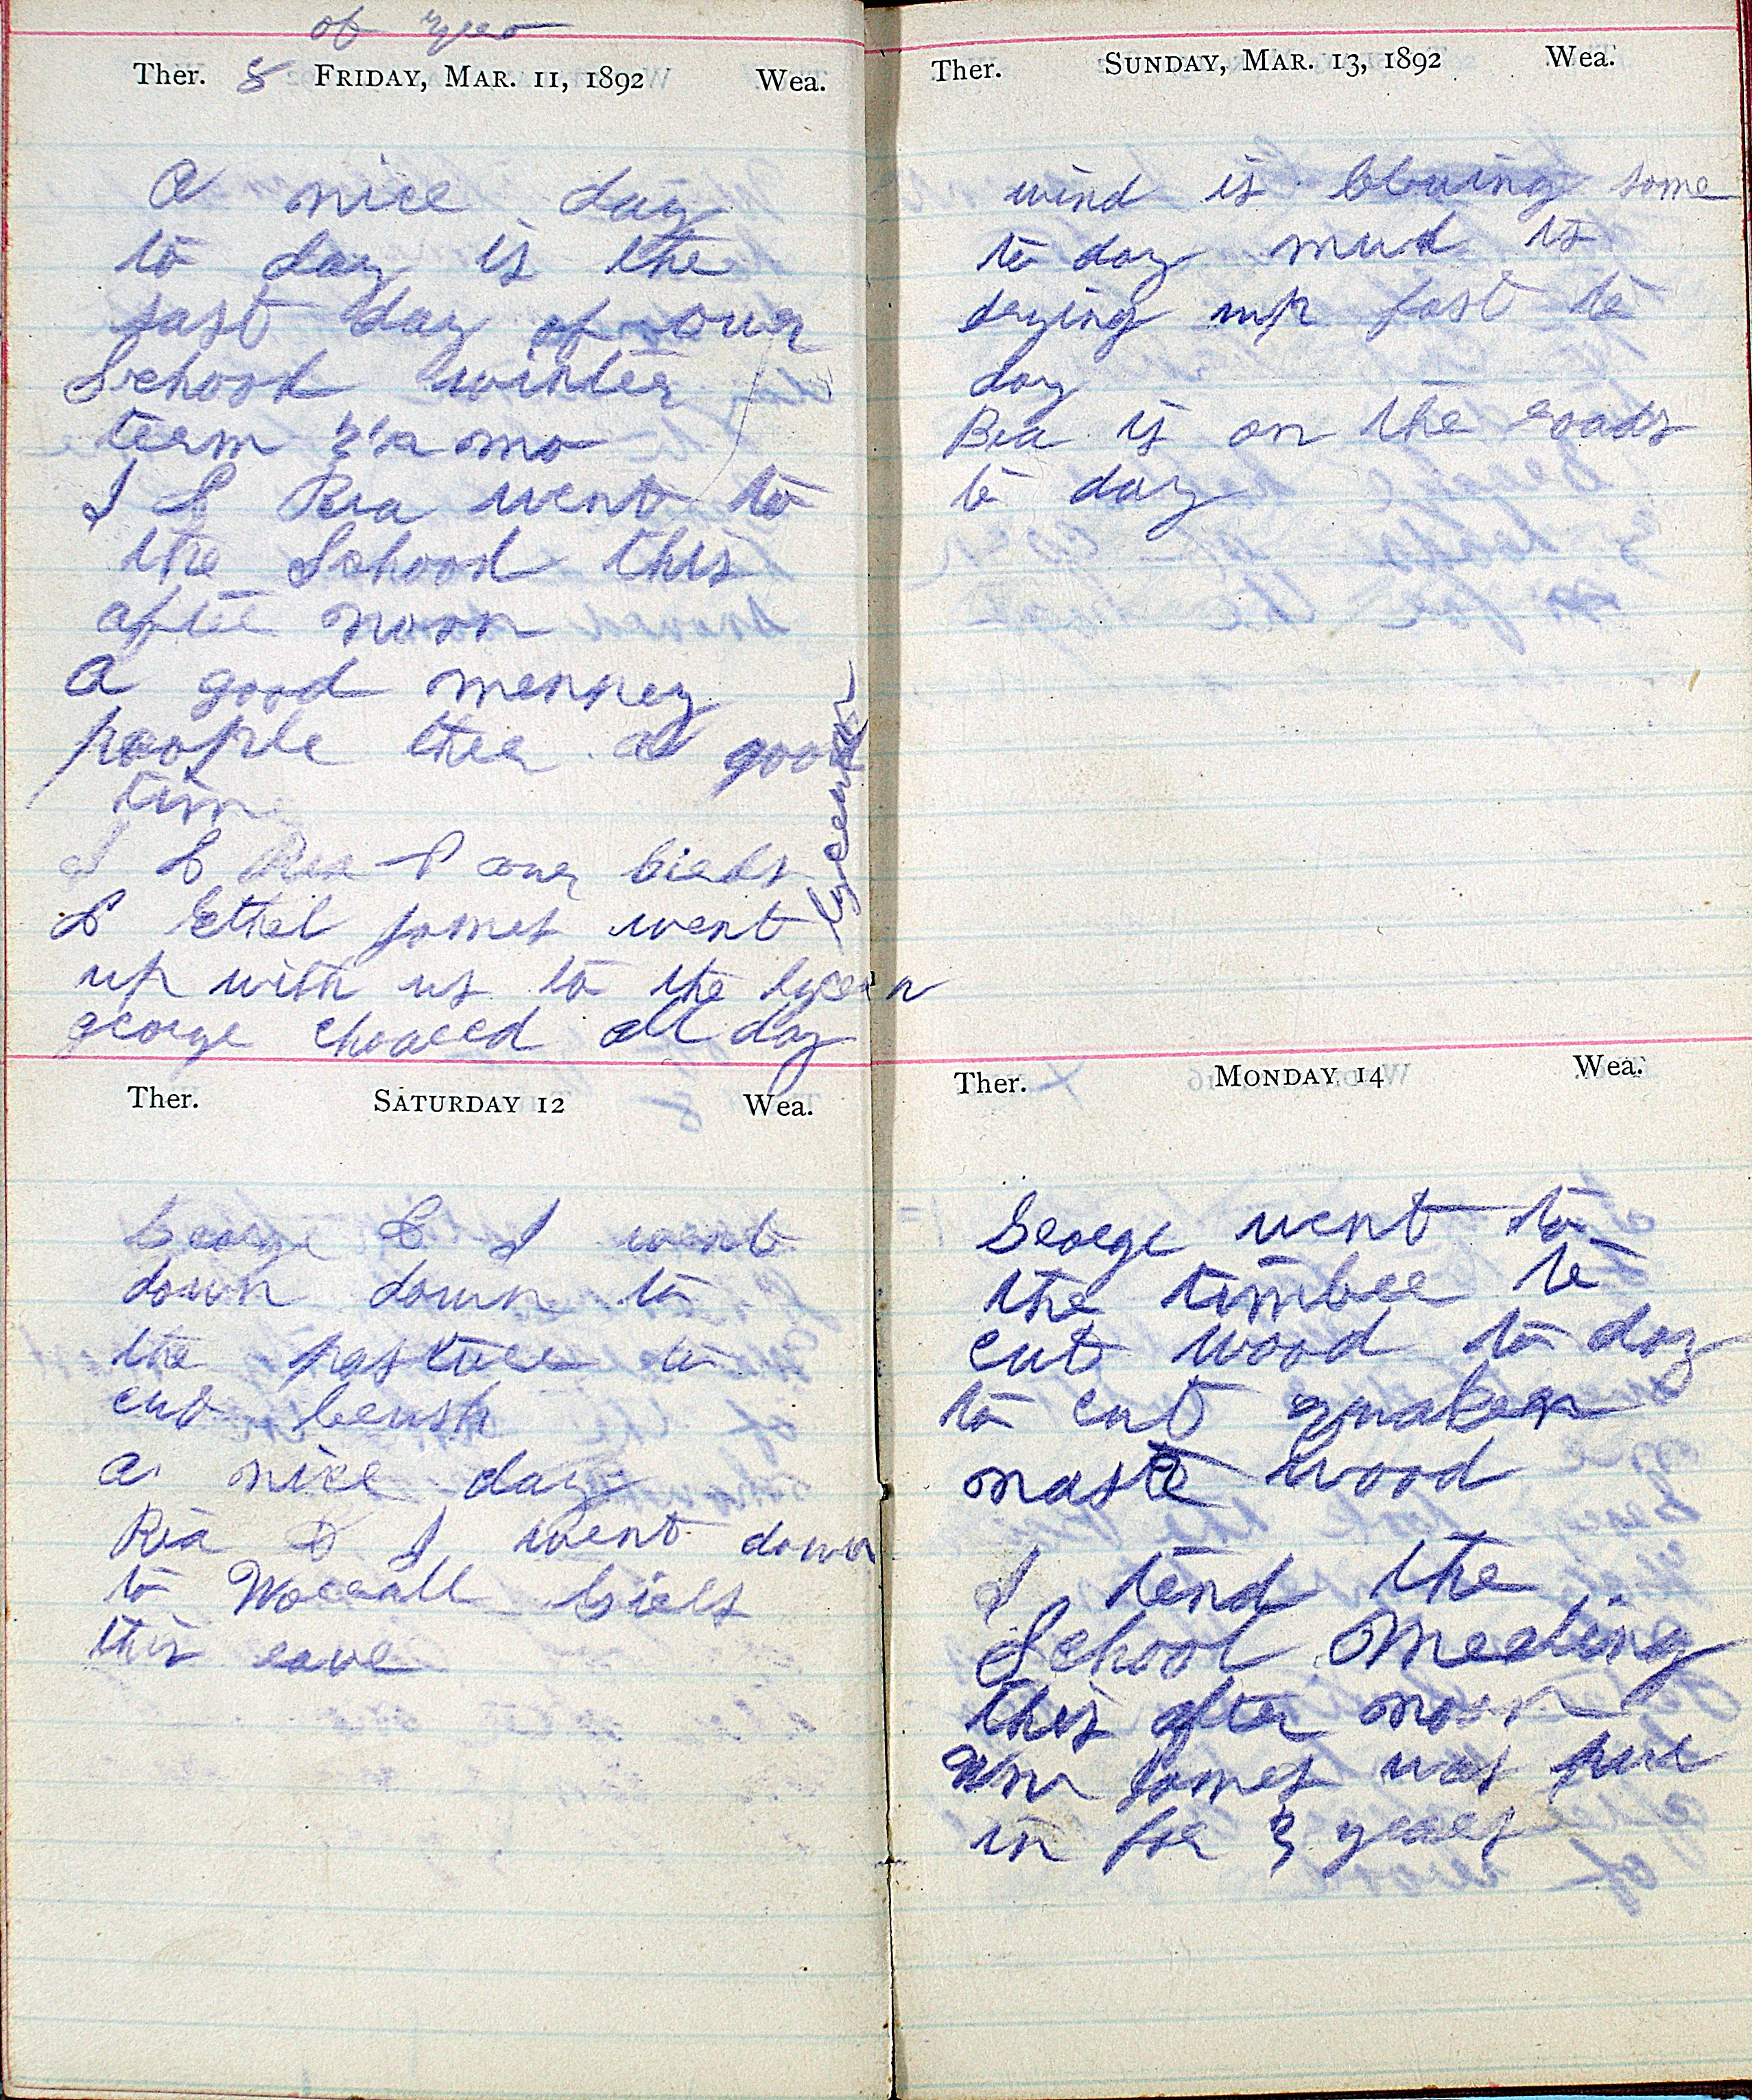 of zero
Ther. 8 FRIDAY, MAR. 11, 1892 Wea.
A nice day
to day is the
last day of our
School winter
term 3 1/2 mo
I & Ria went to
the School this
after noon
A good menney
people ther a good
time
I & Ria & our
& Ethel James went
up with us to the lyceen
george chored all day
Lyceeum
SATURDAY 12
Ther. Wea.
George & I went
down down to
the pasture to
cut brush
a nice day
Ria & I went down
to
this eave
Ther. SUNDAY, MAR. 13, 1892 Wea.
wind is blowing some
to day mud is
drying up fast to
day
Ria is on the roads
to day
Ther. MONDAY 14 Wea.
George went to
the timber to
cut wood to day
to cut
wood
I tend the
School Meeting
this after noon
James was put
in for 3 years